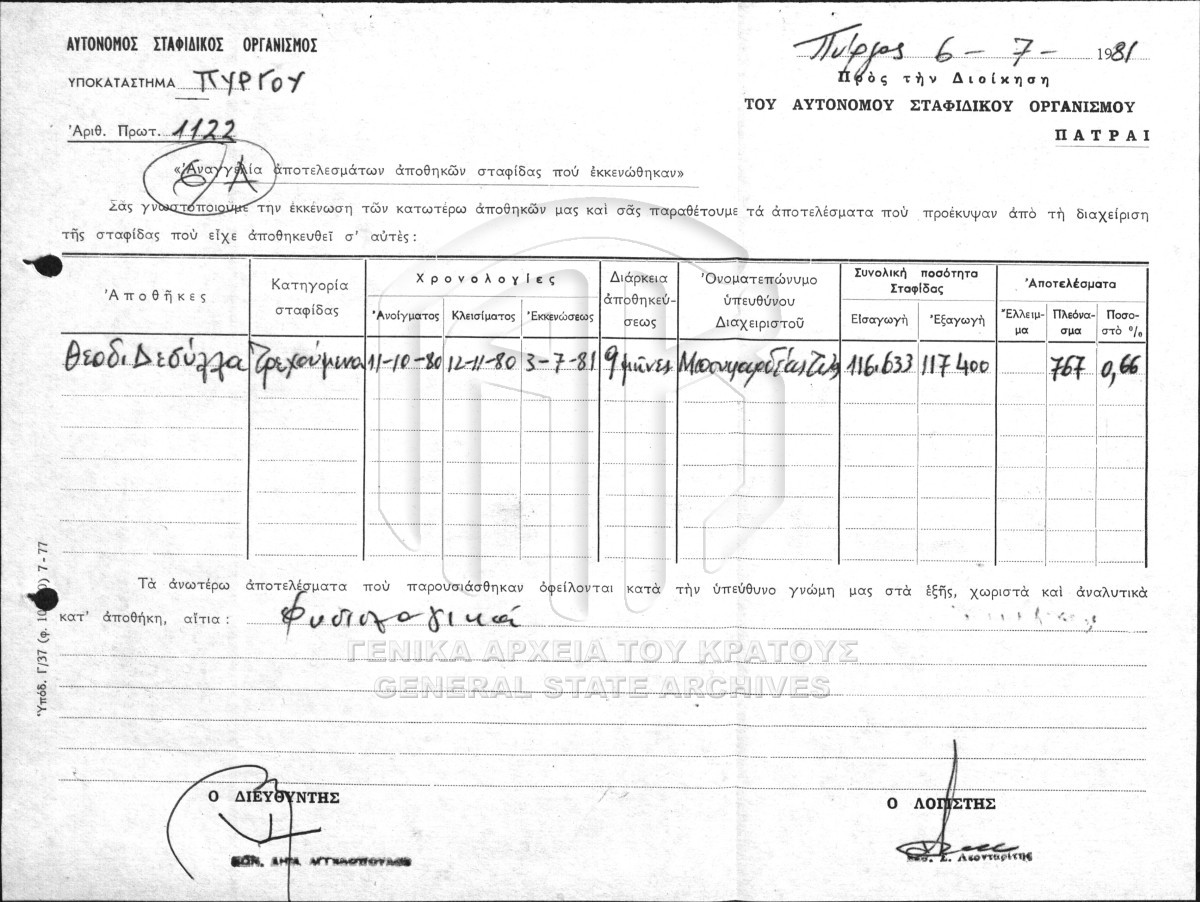 ΑΥΤΟΝΟΜΟΣ ΣΤΑΦΙΔΙΚΟΣ ΟΡΓΑΝΙΣΜΟΣ
ΥΠΟΚΑΤΑΣΤΗΜΑ ΠΥΡΓΟΥ
Ἀριθ. Πρωτ. 1122
Πύργος 6 - 7 - 1981
Πρὸς τὴν Διοίκηση
ΤΟΥ ΑΥΤΟΝΟΜΟΥ ΣΤΑΦΙΔΙΚΟΥ ΟΡΓΑΝΙΣΜΟΥ
ΠΑΤΡΑΙ
«Ἀναγγελία ἀποτελεσμάτων ἀποθηκῶν σταφίδας πού ἐκκενώθηκαν»
Σᾶς γνωστοποιοῦμε την ἐκκένωση τῶν κατωτέρω ἀποθηκῶν μας καὶ σᾶς παραθέτουμε τά ἀποτελέσματα ποὺ προέκυψαν ἀπὸ τὴ διαχείριση
τῆς σταφίδας ποὺ εἶχε ἀποθηκευθεῖ σ' αὐτὲς :
Ἀποθῆκες
Κατηγορία σταφίδας
Χρονολογίες
Ἀνοίγματος Κλεισίματος Ἐκκενώσεως
Διάρκεια ἀποθηκεύσεως
Ὀνοματεπώνυμο ὑπευθύνου Διαχειριστοῦ
Συνολική ποσότητα Σταφίδας
Εἰσαγωγή Ἐξαγωγή
Ἀποτελέσματα
Ἔλλειμμα Πλεόνασμα Ποσοστὸ %
Θεοδ. Δεσύλλα Τρεχούμενα 11-10-80 12-11-80 3-7-81 9 μῆνες 116.633 117400 767 0,66
Τὰ ἀνωτέρω ἀποτελέσματα ποὺ παρουσιάσθηκαν ὀφείλονται κατὰ τὴν ὑπεύθυνο γνώμη μας στὰ ἑξῆς, χωριστὰ καὶ ἀναλυτικὰ
κατ' ἀποθήκη, αἴτια : Φυσιολογικά
Ὑπόδ. Γ/37 7-77
ΓΕΝΙΚΑ ΑΡΧΕΙΑ ΤΟΥ ΚΡΑΤΟΥΣ
GENERAL STATE ARCHIVES
Ο ΔΙΕΥΘΥΝΤΗΣ
Ο ΛΟΓΙΣΤΗΣ
Σ. Λεονταρίτης